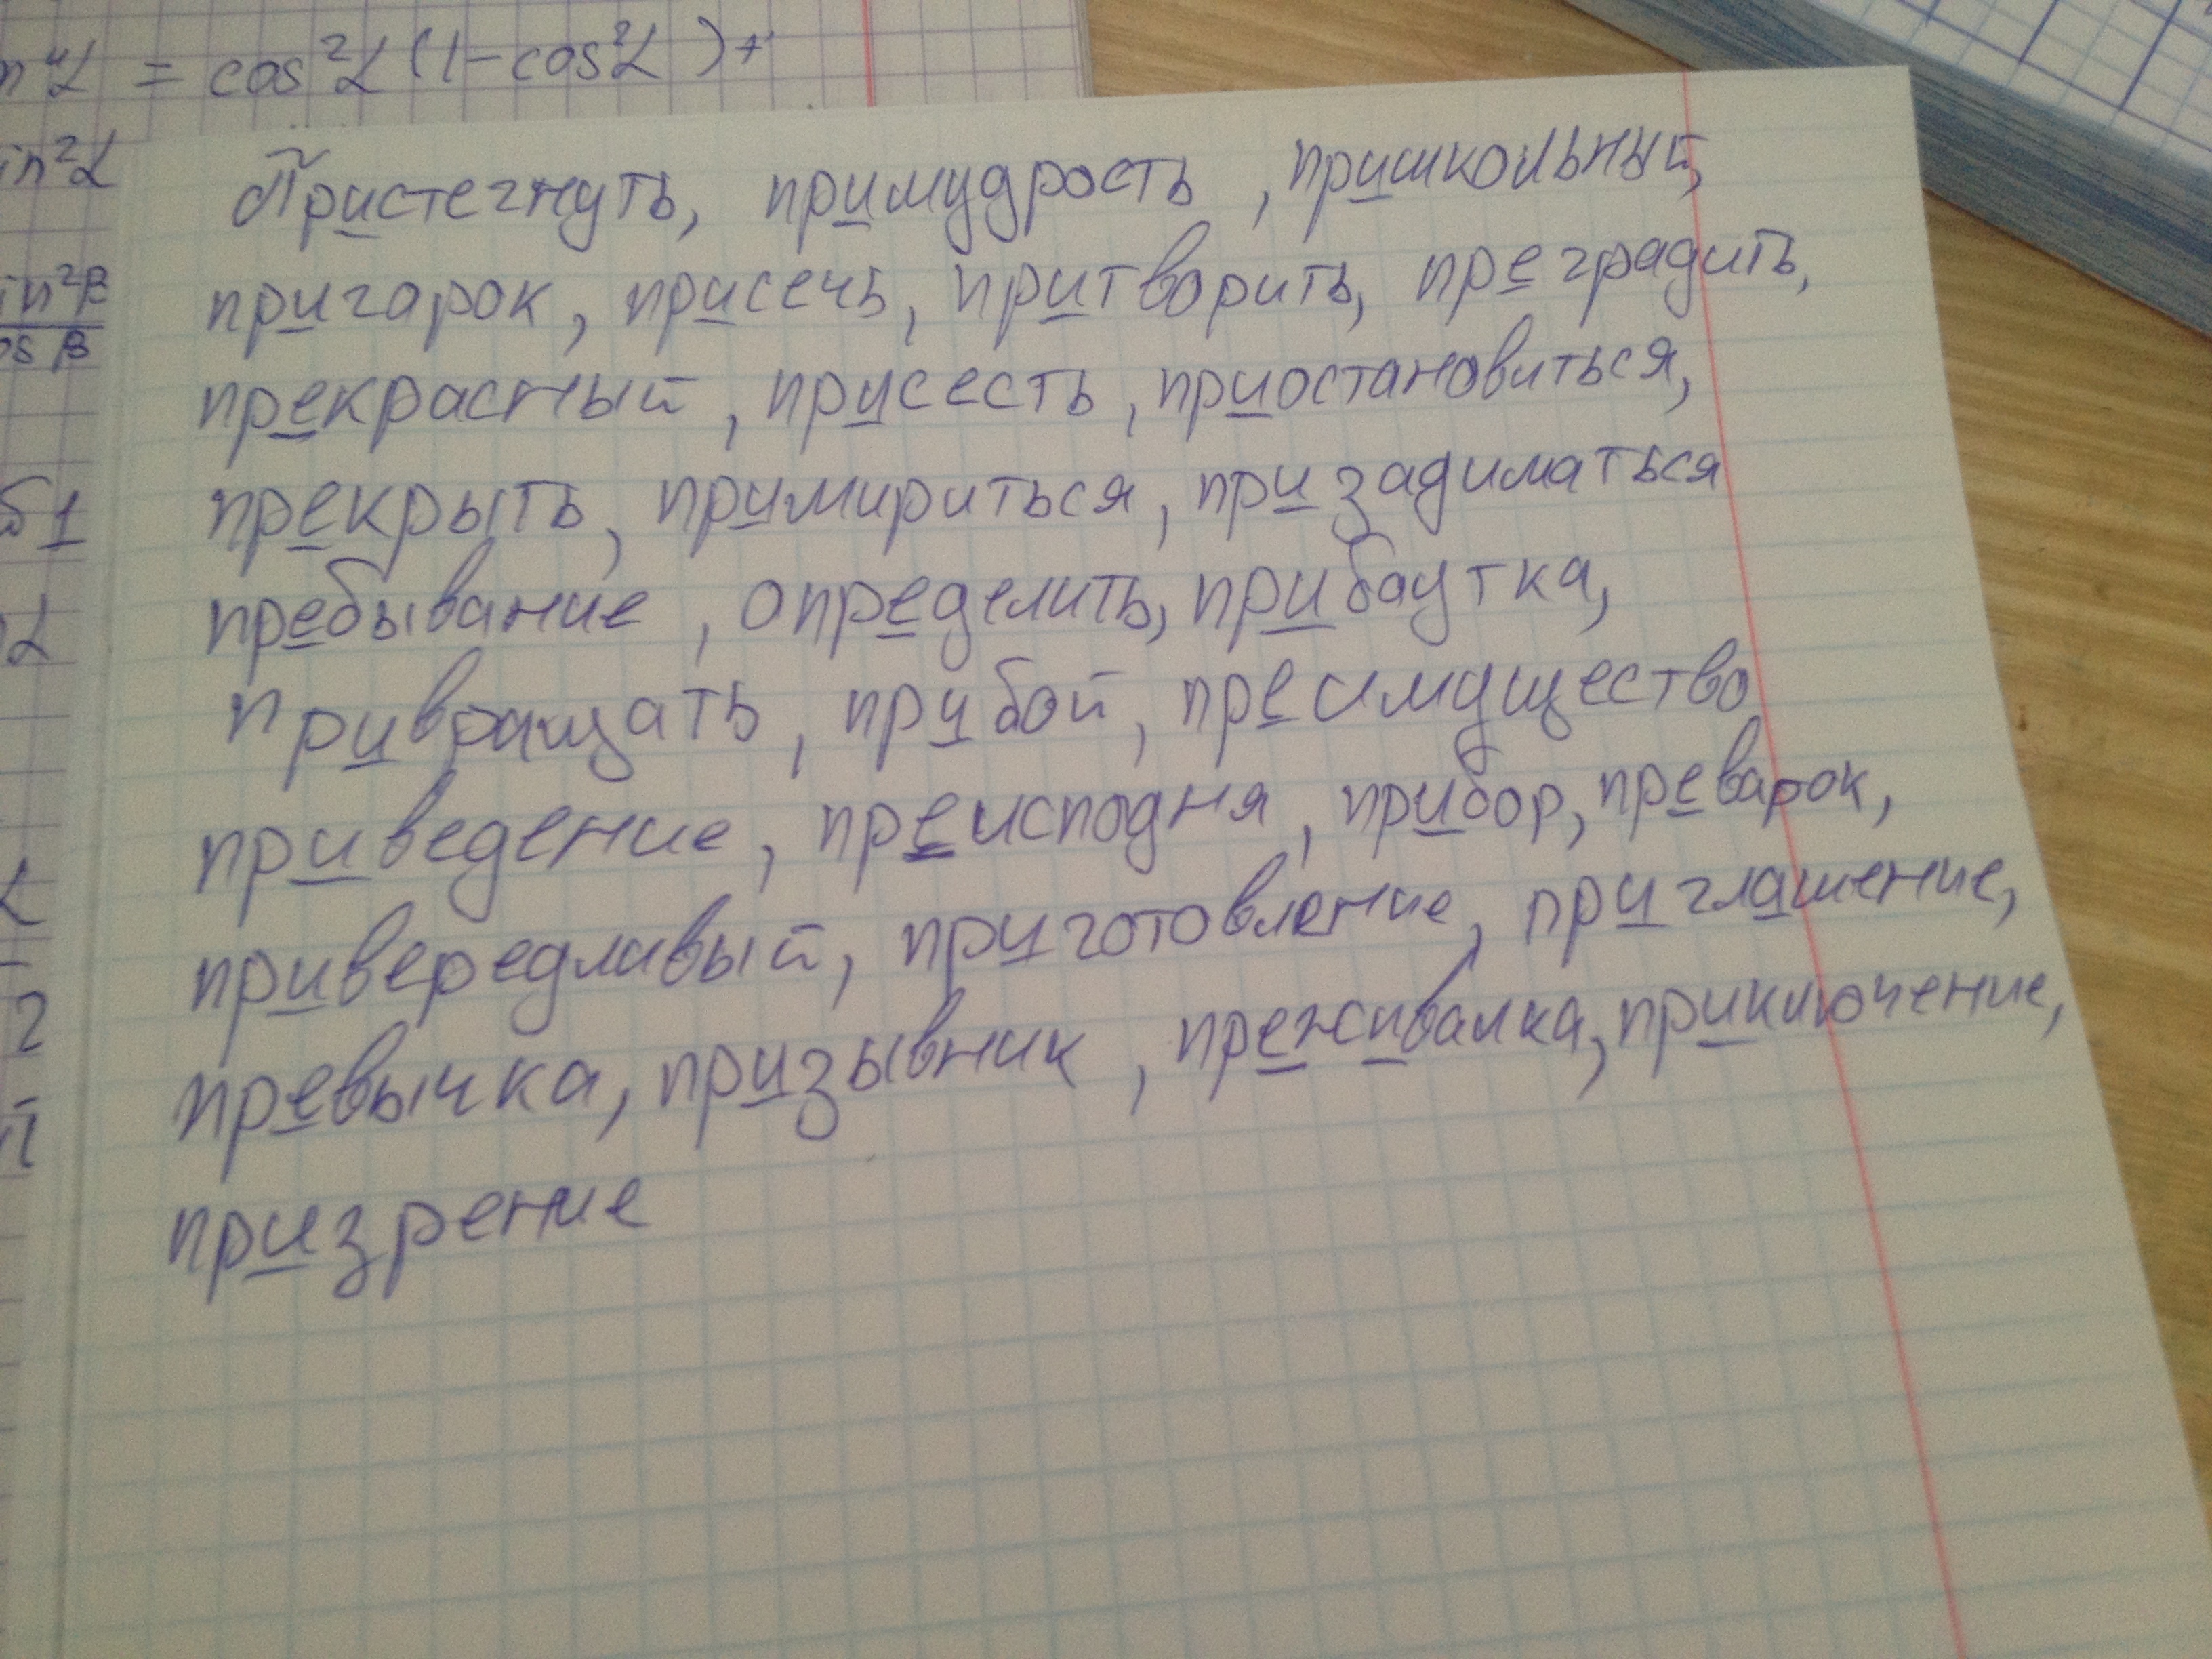 n⁴α = cos²α(1-cos²α)+
in²α
in²β
os β
Пристегнуть, примудрость, пришкольный,
пригарок, присечь, притворить, преградить,
прекрасный, присесть, приостановиться,
прекрыть, примириться, призадиматься
пребывание, определить, прибаутка,
привращать, прибой, преимущество
приведение, преисподня, прибор, преварок,
привередливый, приготовление, приглашение,
превычка, призывник, преживалка, приключение,
призрение